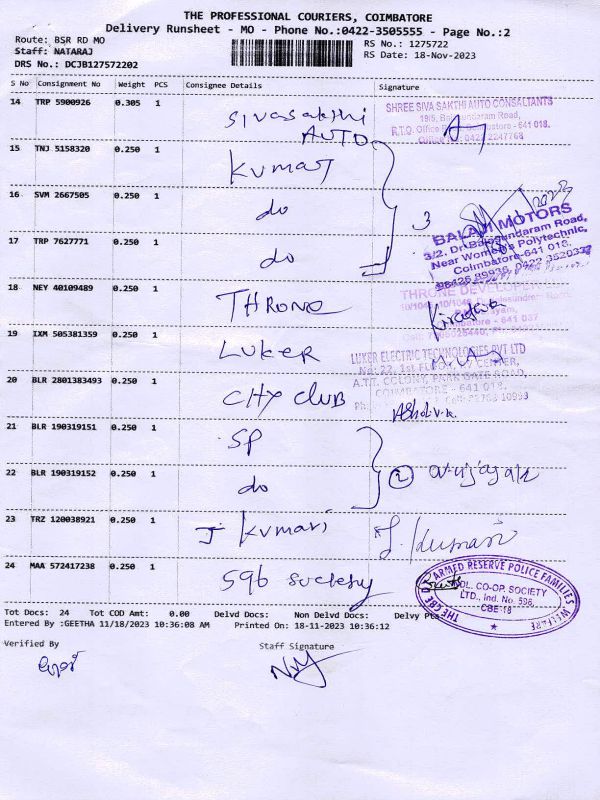 THE PROFESSIONAL COURIERS, COIMBATORE
Delivery Runsheet - MO - Phone No.:0422-3505555 - Page No.:2
Route: BSR RD MO
RS No.: 1275722
Staff: NATARAJ
RS Date: 18-Nov-2023
DRS No.: DCJB127572202
S No Consignment No Weight PCS Consignee Details Signature
14 TRP 5900926 0.305 1 Sivasakthi AUTO
SHREE SIVA SAKTHI AUTO CONSALTANTS
19/5, Balasundaram Road,
R.T.O. Office Coimbatore - 641 018.
0422 2247768
15 TNJ 5158320 0.250 1 Kumar
16 SVM 2667505 0.250 1 do
3
17 TRP 7627771 0.250 1 do
BALAJI MOTORS
3/2, Dr. Balasundaram Road,
Near Women's Polytechnic,
Coimbatore-641 018.
0422 3520337
18 NEY 40109489 0.250 1 THRONE
THRONE DEVELOPER
641 037
19 IXM 505381359 0.250 1 LUKER
LUKER ELECTRIC TECHNOLOGIES PVT LTD
No: 22, 1st FLOOR,
A.T.T. COLONY, PARK GATE ROAD,
COIMBATORE - 641 018.
Ph:
20 BLR 2801383493 0.250 1 CHY CLUB
21 BLR 190319151 0.250 1 SP
22 BLR 190319152 0.250 1 do
2
23 TRZ 120038921 0.250 1 J Kumari J. Kumari
24 MAA 572417238 0.250 1 596 Suciety
ARMED RESERVE POLICE FAMILIES WELFARE
CO-OP. SOCIETY
LTD., Ind. No. 596,
CBE-18
Tot Docs: 24 Tot COD Amt: 0.00 Delvd Docs: Non Delvd Docs: Delvy Pts
Entered By :GEETHA 11/18/2023 10:36:08 AM Printed On: 18-11-2023 10:36:12
Verified By Staff Signature